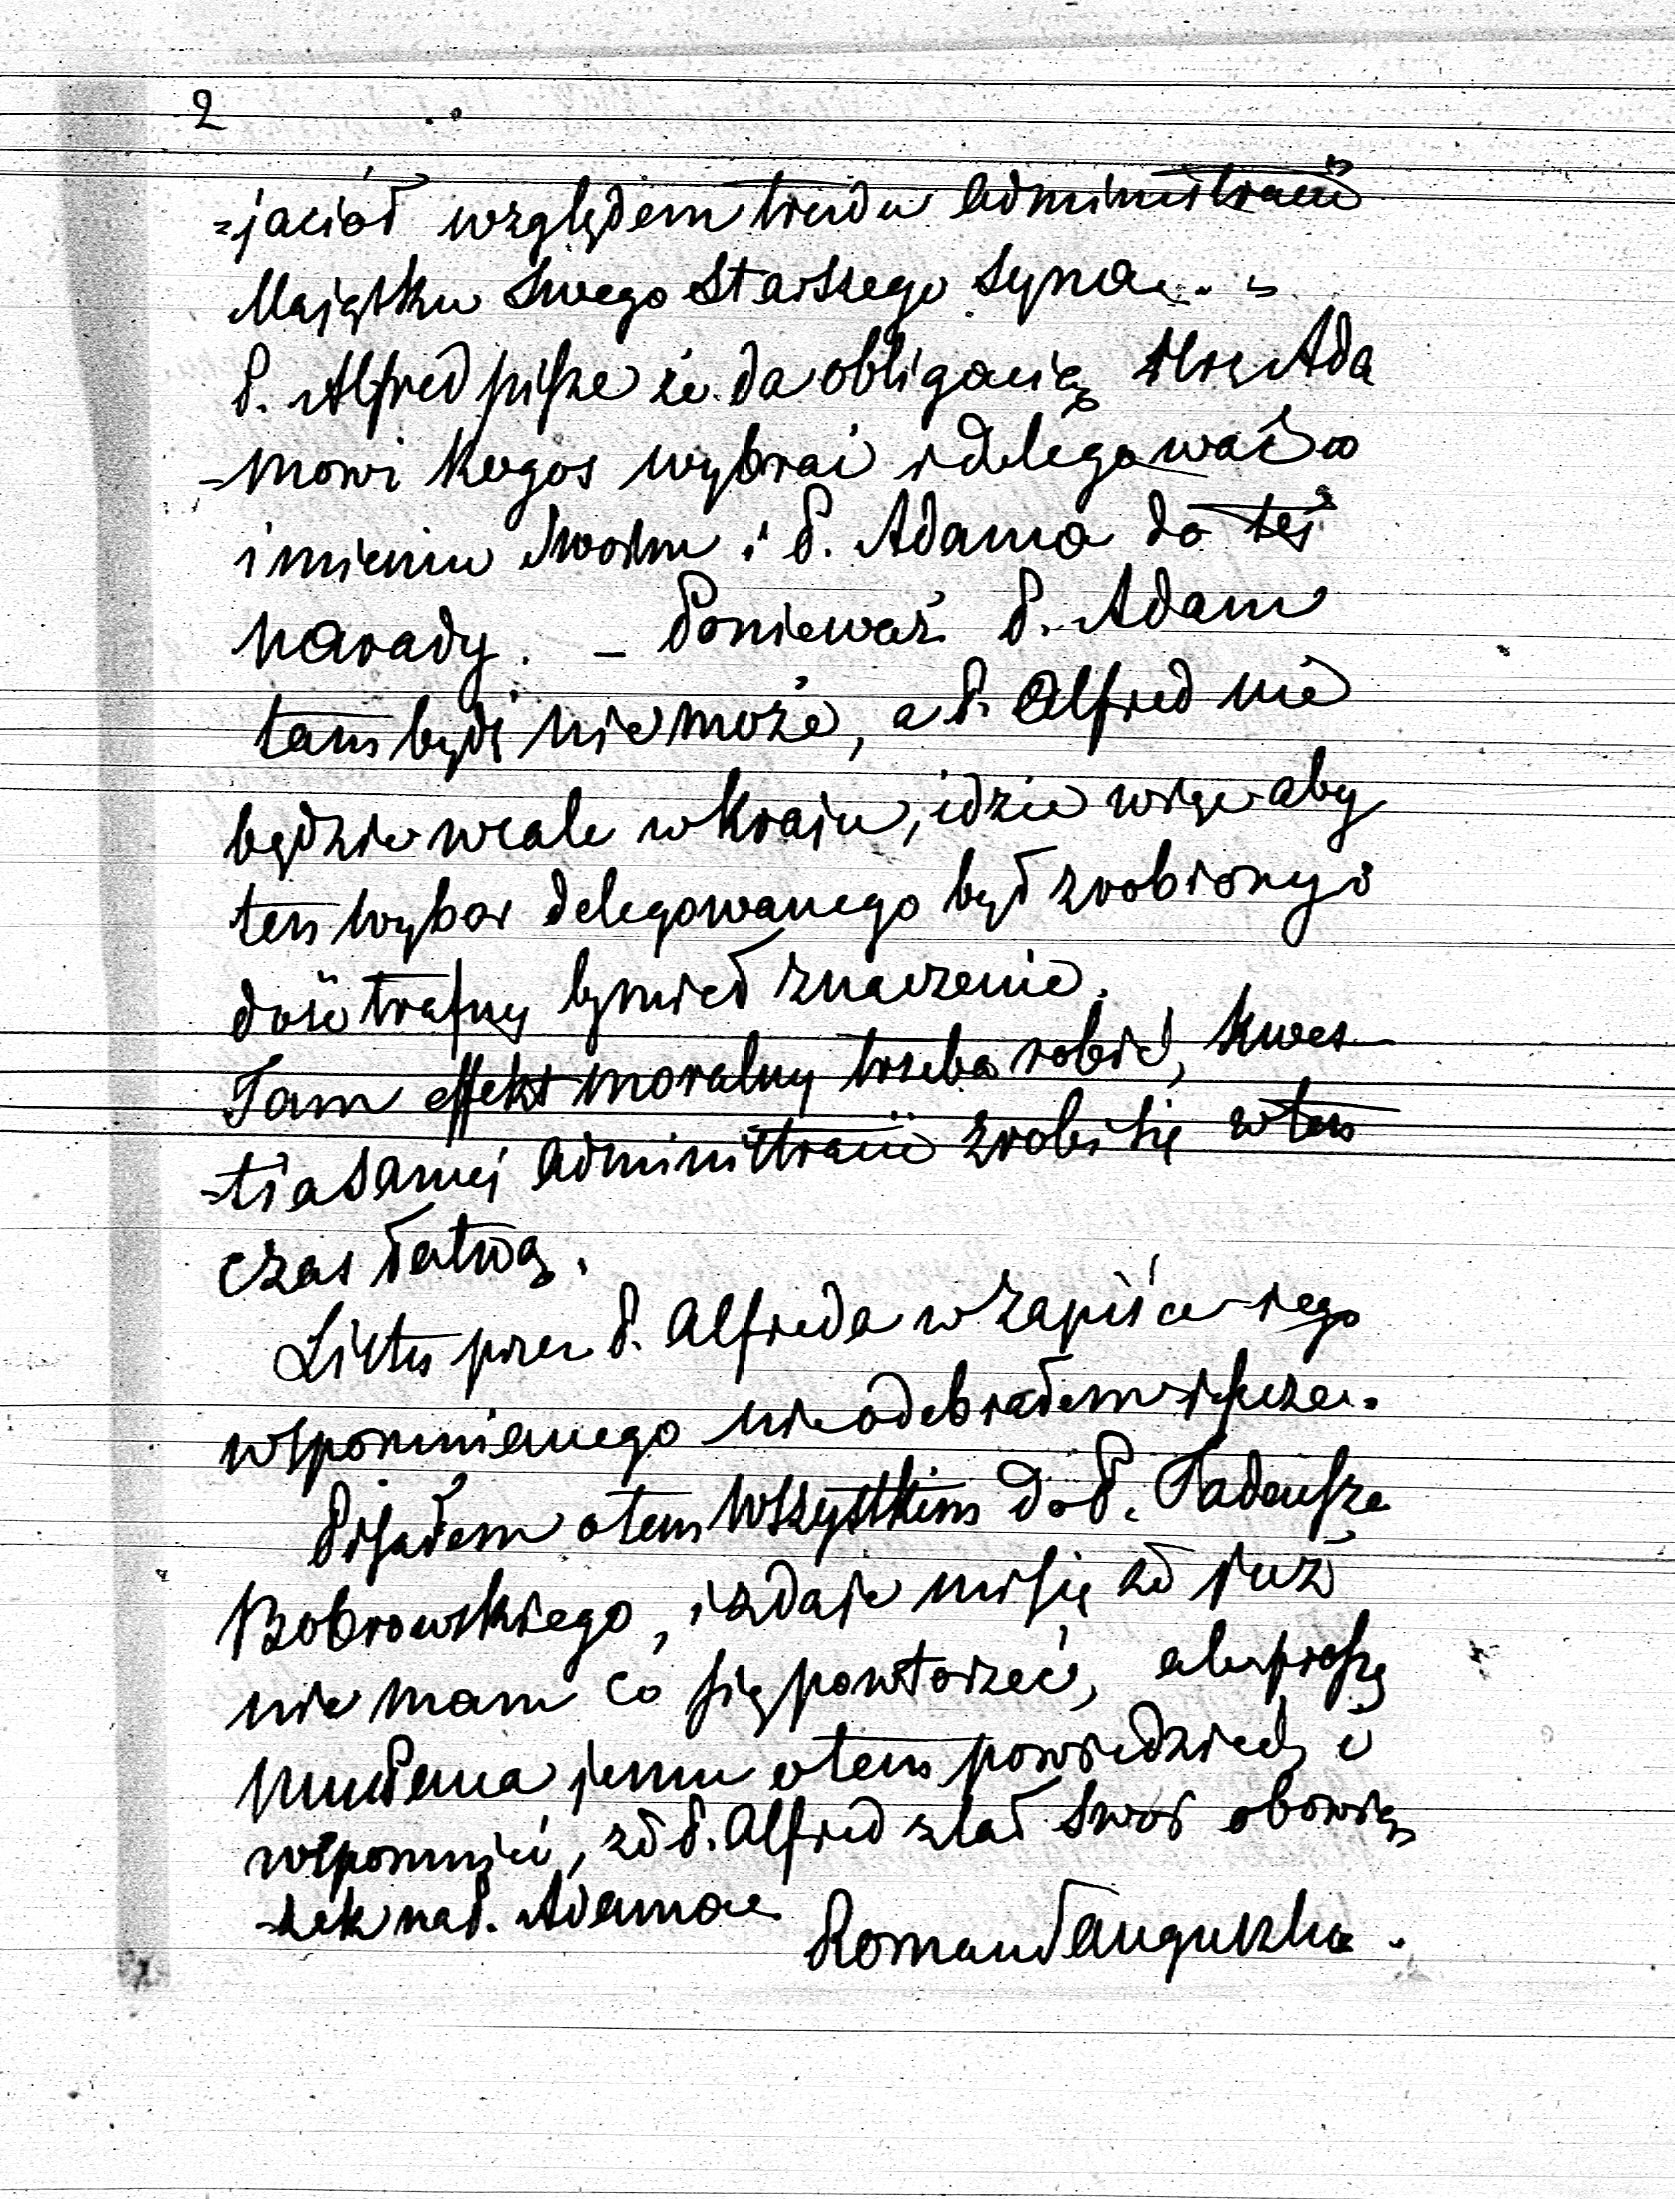 2
=jaciół względem trudu administracii
Majątku swego starszego syna. =
P. Alfred pisze że da obligacią Hr. Ada
-mowi kogoś wybrać i delegować w
imieniu swoim i P. Adama do tej
narady. – Ponieważ P. Adam
tam bydź nie może, a P. Alfred nie
będzie wcale w kraju, idzie więc aby
ten wybor delegowanego był zrobiony i
dość trafny by miał znaczenie.
Tam effekt moralny trzeba robić, kwes
=tia samej administracii zrobi się w ten
czas łatwą.
Listu przez P. Alfreda w zapisce jego
wspomnianego nie odebrałem jeszcze.
Pisałem o tem wszystkim do P. Tadeusza
Bobrowskiego, i zdaje mi się że już
nie mam co się powtarzać, ale proszę
jemu o tem powiedzieć i
wspomnieć, że P. Alfred zlał swoj obowią
-zek na P. Adama
Roman Sanguszko.